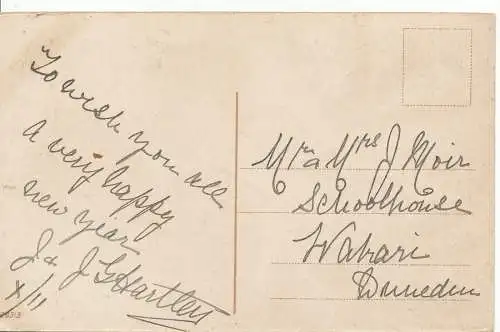 To wish you all
a very happy
new year
J & J G Hartley
X/11
Mr & Mrs J Moir
Schoolhouse
Wakari
Dunedin